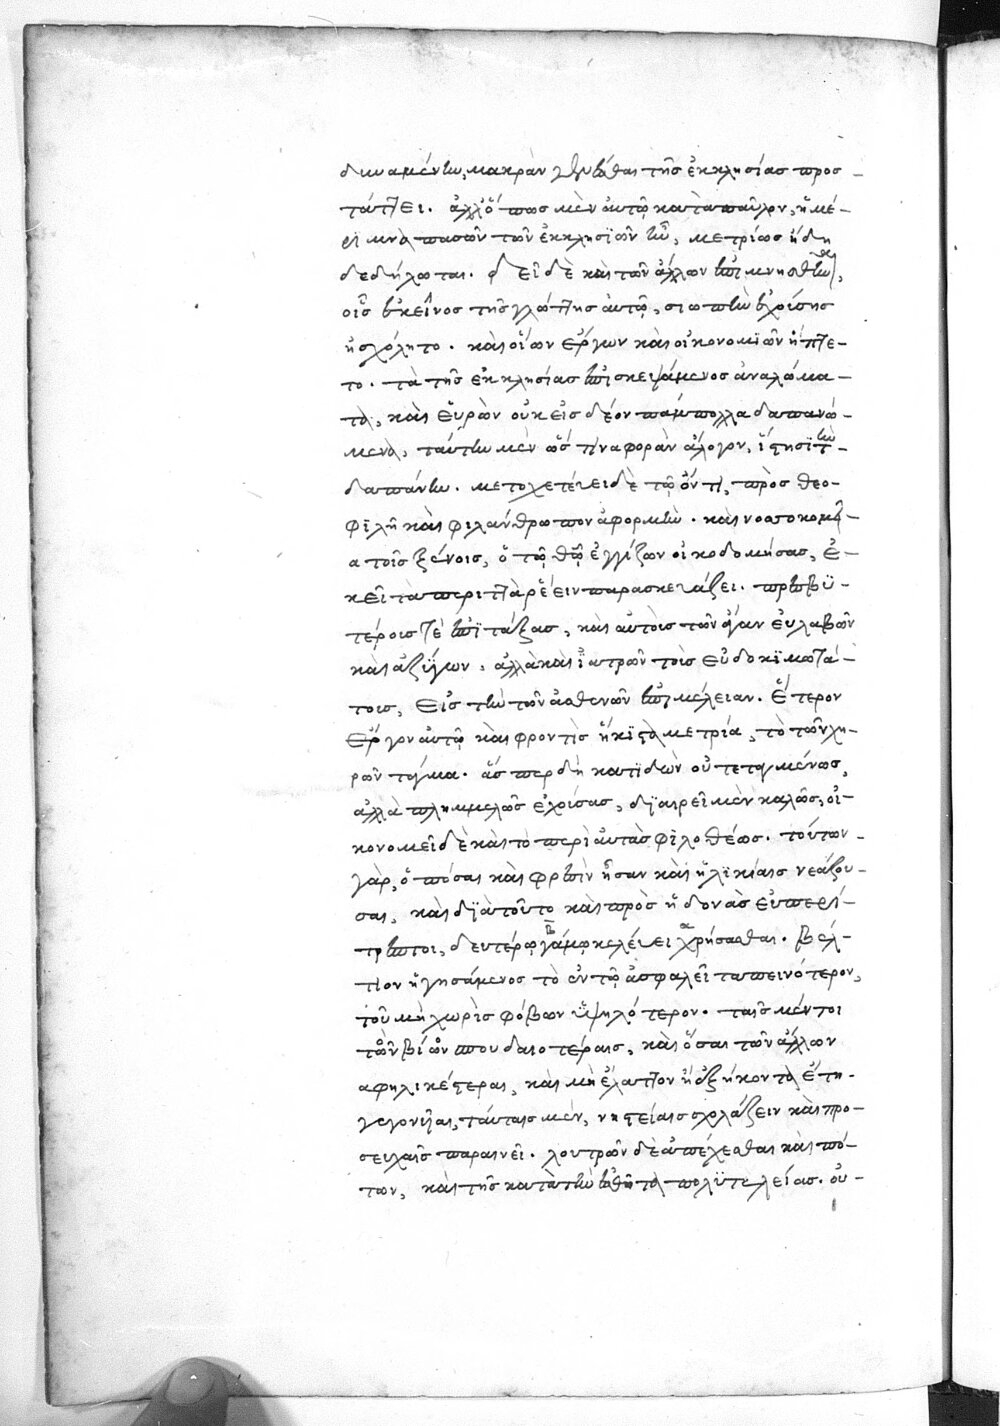 δυναμένην, μακρὰν γενέσθαι τῆς ἐκκλησίας προσ-
τάττει. ἀλλ' ὅπως μὲν αὐτῷ κατὰ παῦλον, ἡ μέ-
ριμνα πασῶν τῶν ἐκκλησϊῶν ἦν, μετρίως ἤδη
δεδήλωται. δεῖ δὲ καὶ τῶν ἄλλων ἐπιμνησθῆναι,
οἷς ἐκεῖνος τῆς γλώττης αὐτῷ, σιωπὴν
ἠσχόλητο. καὶ οἵων ἔργων καὶ οἰκονομϊῶν ἥπτε-
το. τὰ τῆς ἐκκλησίας ἐπισκεψάμενος ἀναλώμα-
τα, καὶ εὑρὼν οὐκ εἰς δέον πάμπολλα δαπανώ-
μενα, ταύτην μὲν ὥς τινα φορὰν ἄλογον, ἵστησϊ τὴν
δαπάνην. μετοχετεύει δὲ τῷ ὄντι, πρὸς θεο-
φϊλῆ καὶ φιλάνθρωπον ἀφορμὴν. καὶ νοσοκομεῖ-
α τοῖς ξένοις, ὁ τῷ θῷ ἐγγίζων οἰκοδομήσας, ἐ-
κεῖ τὰ περιττὰ ῥέειν παρασκευάζει. πρεσβϋ-
τέροις τὲ ἐπϊτάξας, καὶ αὐτοῖς τῶν ἄγαν εὐλαβῶν
καὶ ἀζύγων. ἀλλὰ καὶ ἰατρῶν τοῖς εὐδοκϊμωτά-
τοις, εἰς τὴν τῶν ἀσθενῶν ἐπιμέλειαν. ἕτερον
ἔργον αὐτῷ καὶ φροντὶς ἥκϊστα μετρία, τὸ τῶν χη-
ρῶν τάγμα. ἅσπερ δὴ κατιδὼν οὐ τεταγμένως,
ἀλλὰ πλημμελῶς ἐχούσας, δϊαιρεῖ μὲν καλῶς, οἰ-
κονομεῖ δὲ καὶ τὸ περὶ αὐτὰς φϊλοθέως. τούτων
γὰρ, ὁπόσαι καὶ φρεσὶν ἦσαν καὶ ἡλϊκίαις νεάζου-
σαι, καὶ δϊὰ τοῦτο καὶ πρὸς ἡδονὰς εὐπερί-
τρεπτοι, δευτέρῳ γάμῳ κελεύει χρήσασθαι. βέλ-
τιον ἡγησάμενος τὸ ἐν τῷ ἀσφαλεῖ ταπεινότερον,
τοῦ μὴ χωρὶς φόβων ὑψηλότερον. ταῖς μέντοι
τῶν βίων σπουδαιοτέραις, καὶ ὅσαι τῶν ἄλλων
ἀφηλικέστεραι, καὶ μὴ ἔλαττον ἢ ἑξήκοντα ἔτη
γεγονυῖαι, ταύταις μὲν, νηστείαις σχολάζειν καὶ προ-
σευχαῖς παραινεῖ. λουτρῶν δὲ ἀπέχεσθαι καὶ πό-
των, καὶ τῆς κατὰ τὴν ἐσθῆτα πολϋτελείας. οὐ-